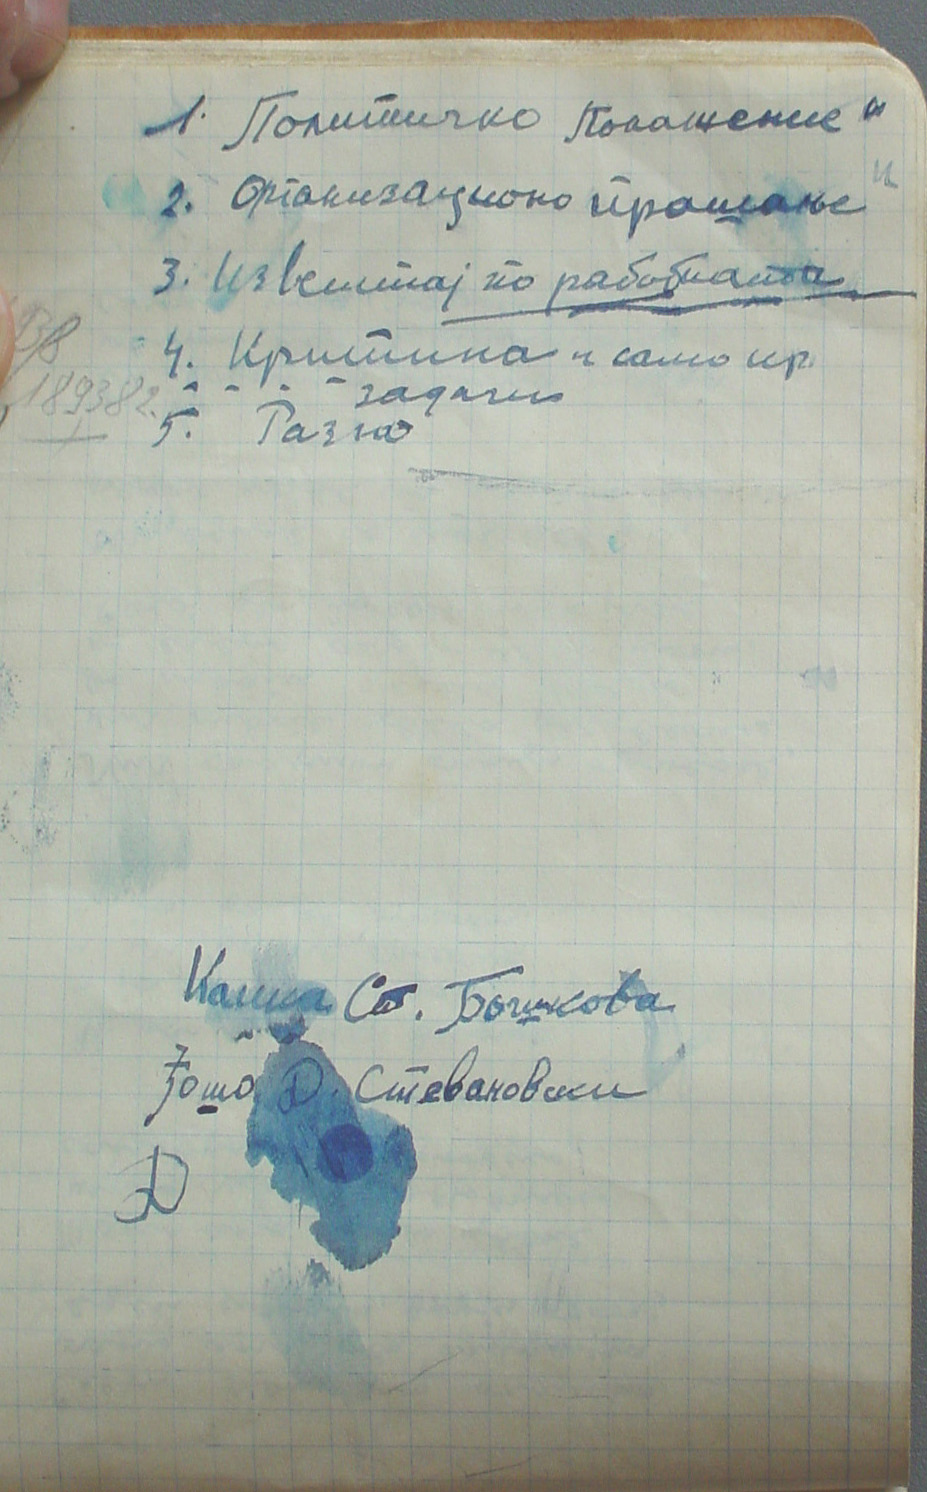 1. Политичко Положение "
2. Организационо прашање
3. Извештај по работната
4. Критика и само кр.
задачи
5. Разно
189382
Ст. Бошкова
Гошо Д. Стевановски
Д